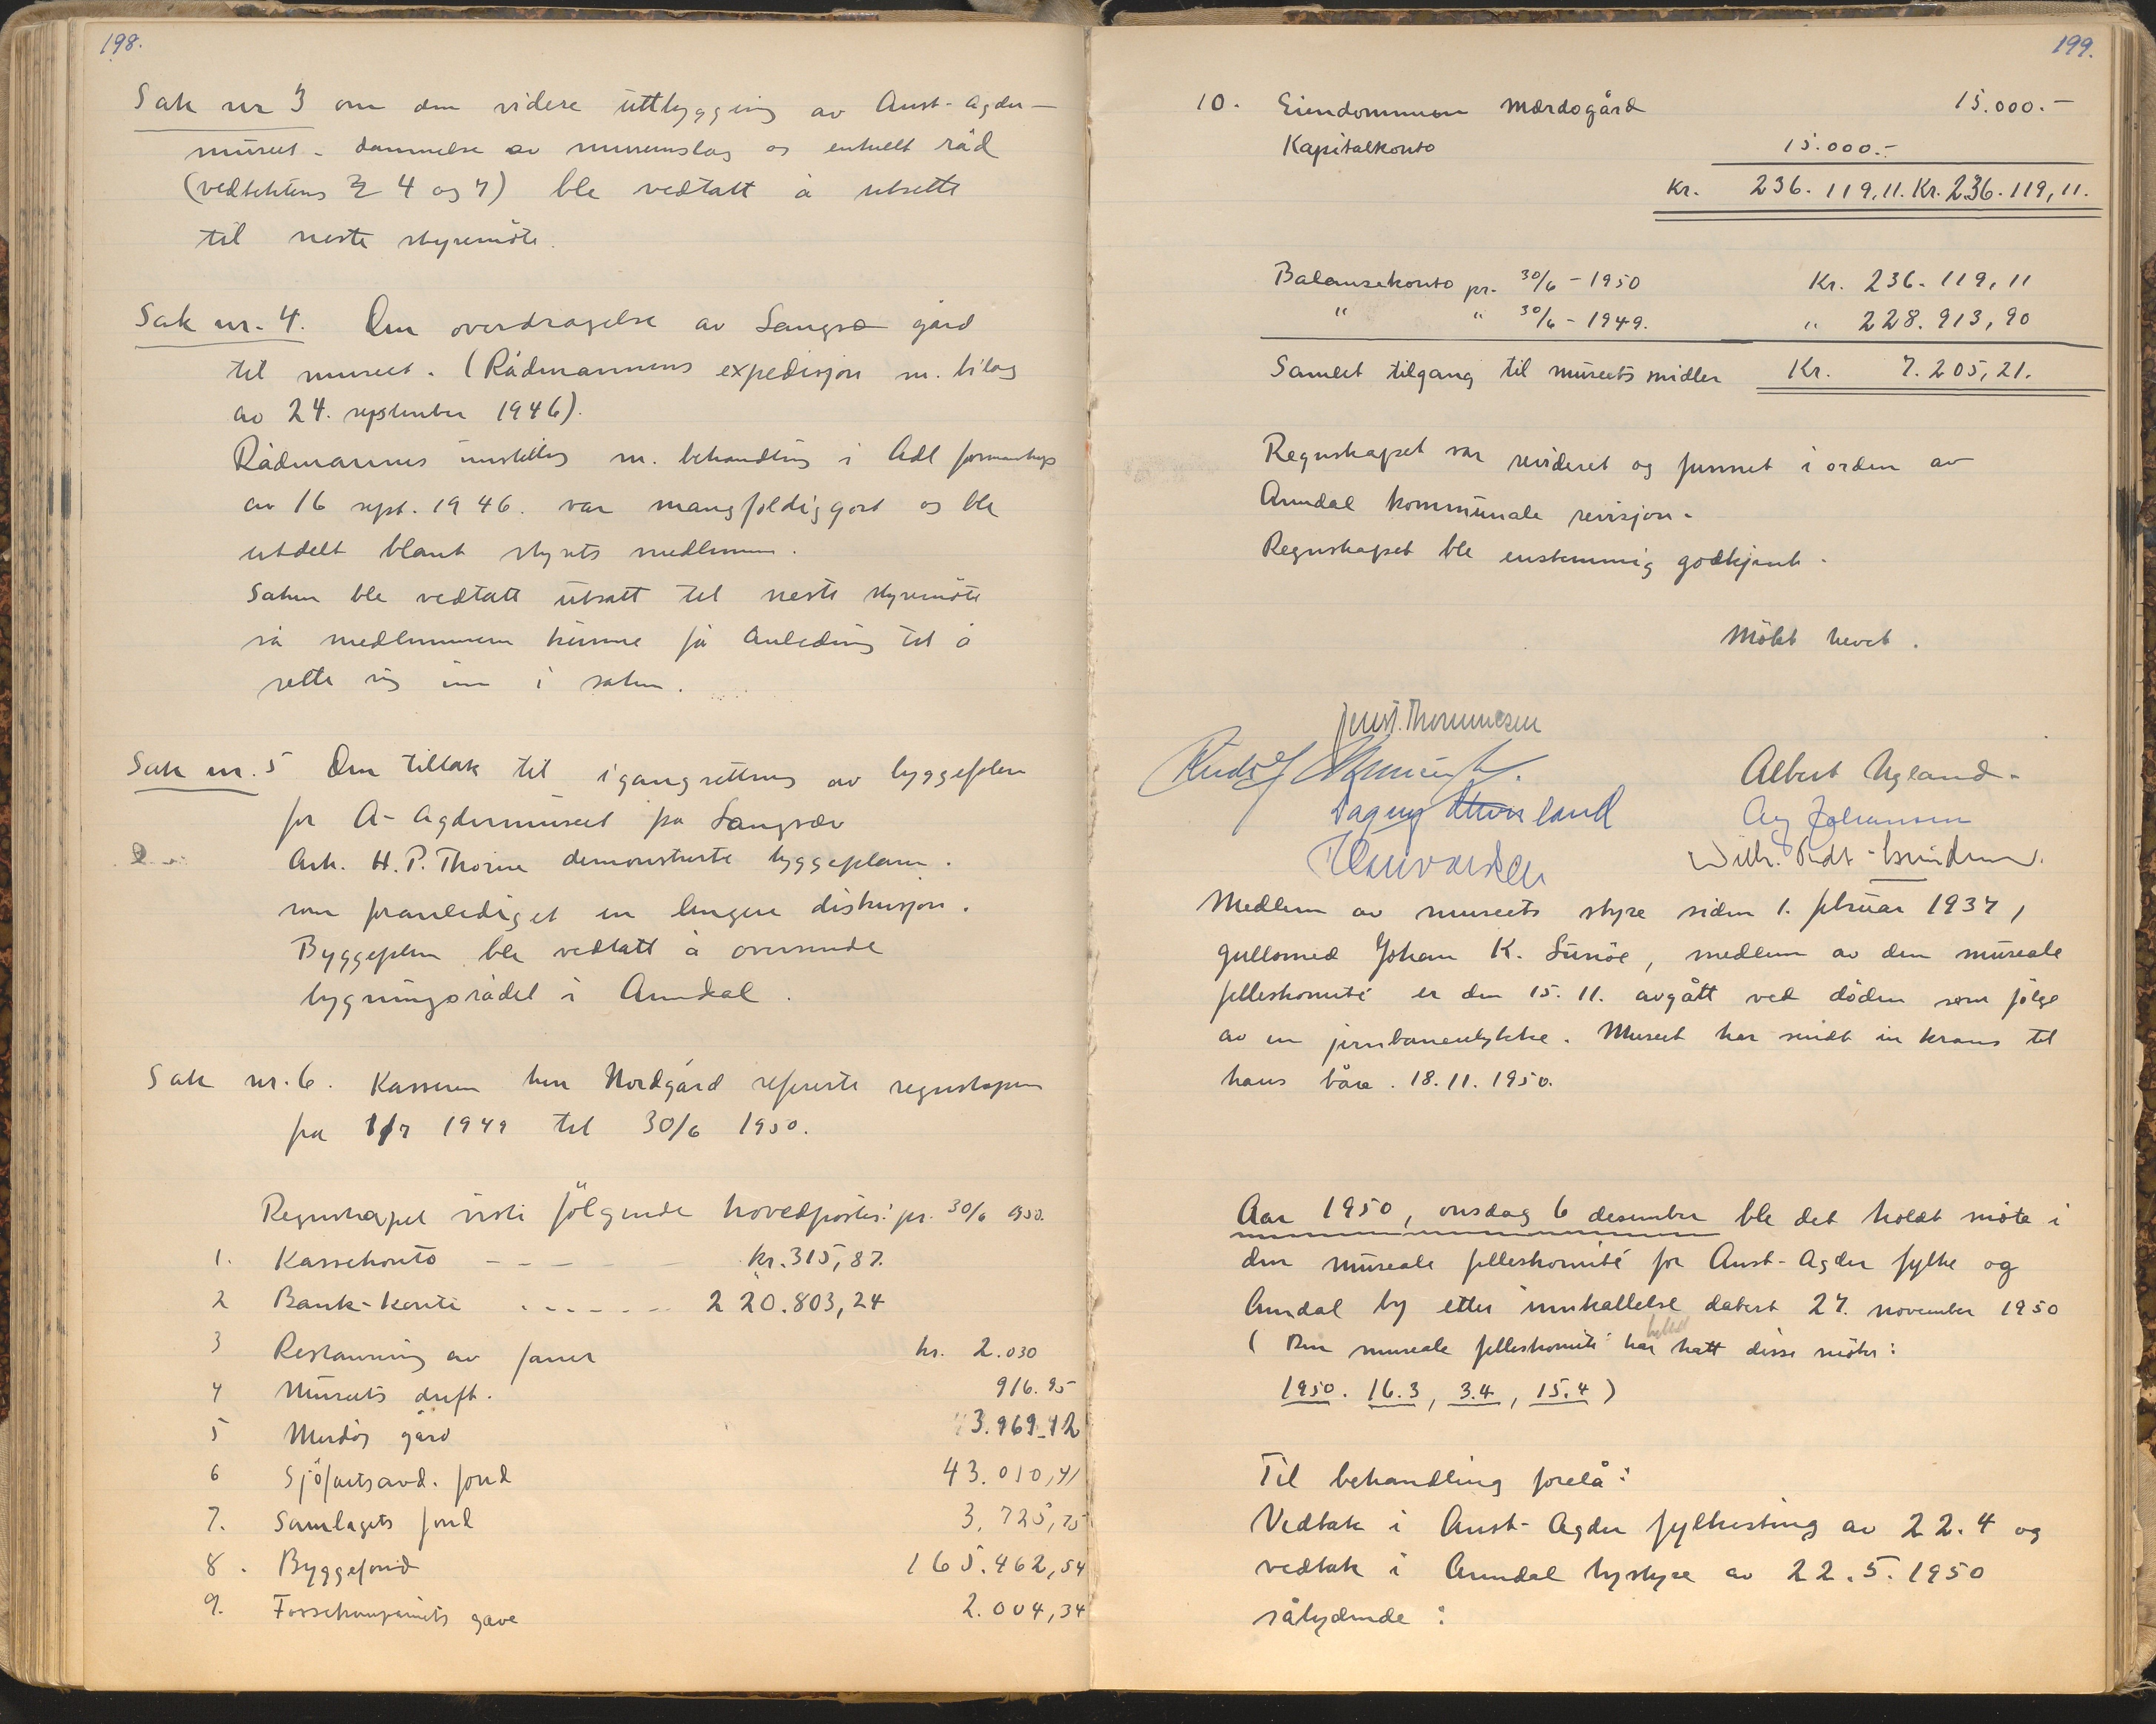 198.
Sak nr 3 om den videre utbygging av Aust-Agder-
museet - dannelse av museumslag og eventuelt råd
(vedtektens § 4 og 7) ble vedtatt å utsette
til neste styremöte.
Sak nr. 4. Om overdragelse av Langsæ gård
til museet. (Rådmannens expedisjon m. bilag
av 24. september 1946).
Rådmannens innstilling m. behandling i Adl formannskap
av 16 sept. 1946. var mangfoldiggort og ble
utdelt blant styrets medlemmer.
Saken ble vedtatt utsatt til neste styremöte
så medlemmene kunne få anledning til å
sette sig inn i saken.
Sak nr. 5 Om tiltak til igangsetting av byggeplan
for A-Agdermuseet på Langsæ
Ark. H. P. Thorne demonstrerte byggeplanen.
som foranlediget en lengere diskusjon.
Byggeplanen ble vedtatt å oversende
bygningsrådet i Arendal.
Sak nr. 6. Kasseren herr Nordgård refererte regnskapene
fra 1/7 1949 til 30/6 1950.
Regnskapet viste fölgende hovedposter: pr. 30/6 1950.
1. Kassekonto - - - - kr. 315,87.
2 Bank-konti . - - - - 220.803,24
3 Restaurering av faner kr. 2.030
4 Museets drift. 916.95
5 Merdög gård 3.969.12
6 Sjöfartsavd. fond 43.010,41
7. Samlagets fond 3.725,75
8. Byggefond 165.462,54
9. Fossekompaniets gave 2.004,34
199.
10. Eiendommen Mærdogård 15.000.-
Kapitalkonto 15.000.-
Kr. 236.119,11. Kr. 236.119,11.
Balansekonto pr. 30/6 - 1950 Kr. 236.119,11
" " 30/6 - 1949. " 228.913,90
Samlet tilgang til museets midler Kr. 7.205,21.
Regnskapet var revideret og funnet i orden av
Arendal kommunale revisjon.
Regnskapet ble enstemmig godkjent.
Mötet hevet.
Thommesen
Albert Ugland.
Dagny land
Aug Johansen
Medlem av museets styre siden 1. februar 1937,
gullsmed Johan K. Sunöe, medlem av den museale
felleskomité er den 15.11. avgått ved döden som fölge
av en jernbaneulykke. Museet har sendt en krans til
hans båre. 18.11.1950.
Aar 1950, onsdag 6 desember ble det holdt möte i
den museale felleskomité for Aust-Agder fylke og
Arendal by etter innkallelse datert 27. november 1950
(Den museale felleskomité har hatt disse möter:
1950. 16.3, 3.4, 15.4)
Til behandling forelå:
Vedtak i Aust-Agder fylkesting av 22.4 og
vedtak i Arendal bystyre av 22.5.1950
sålydende: